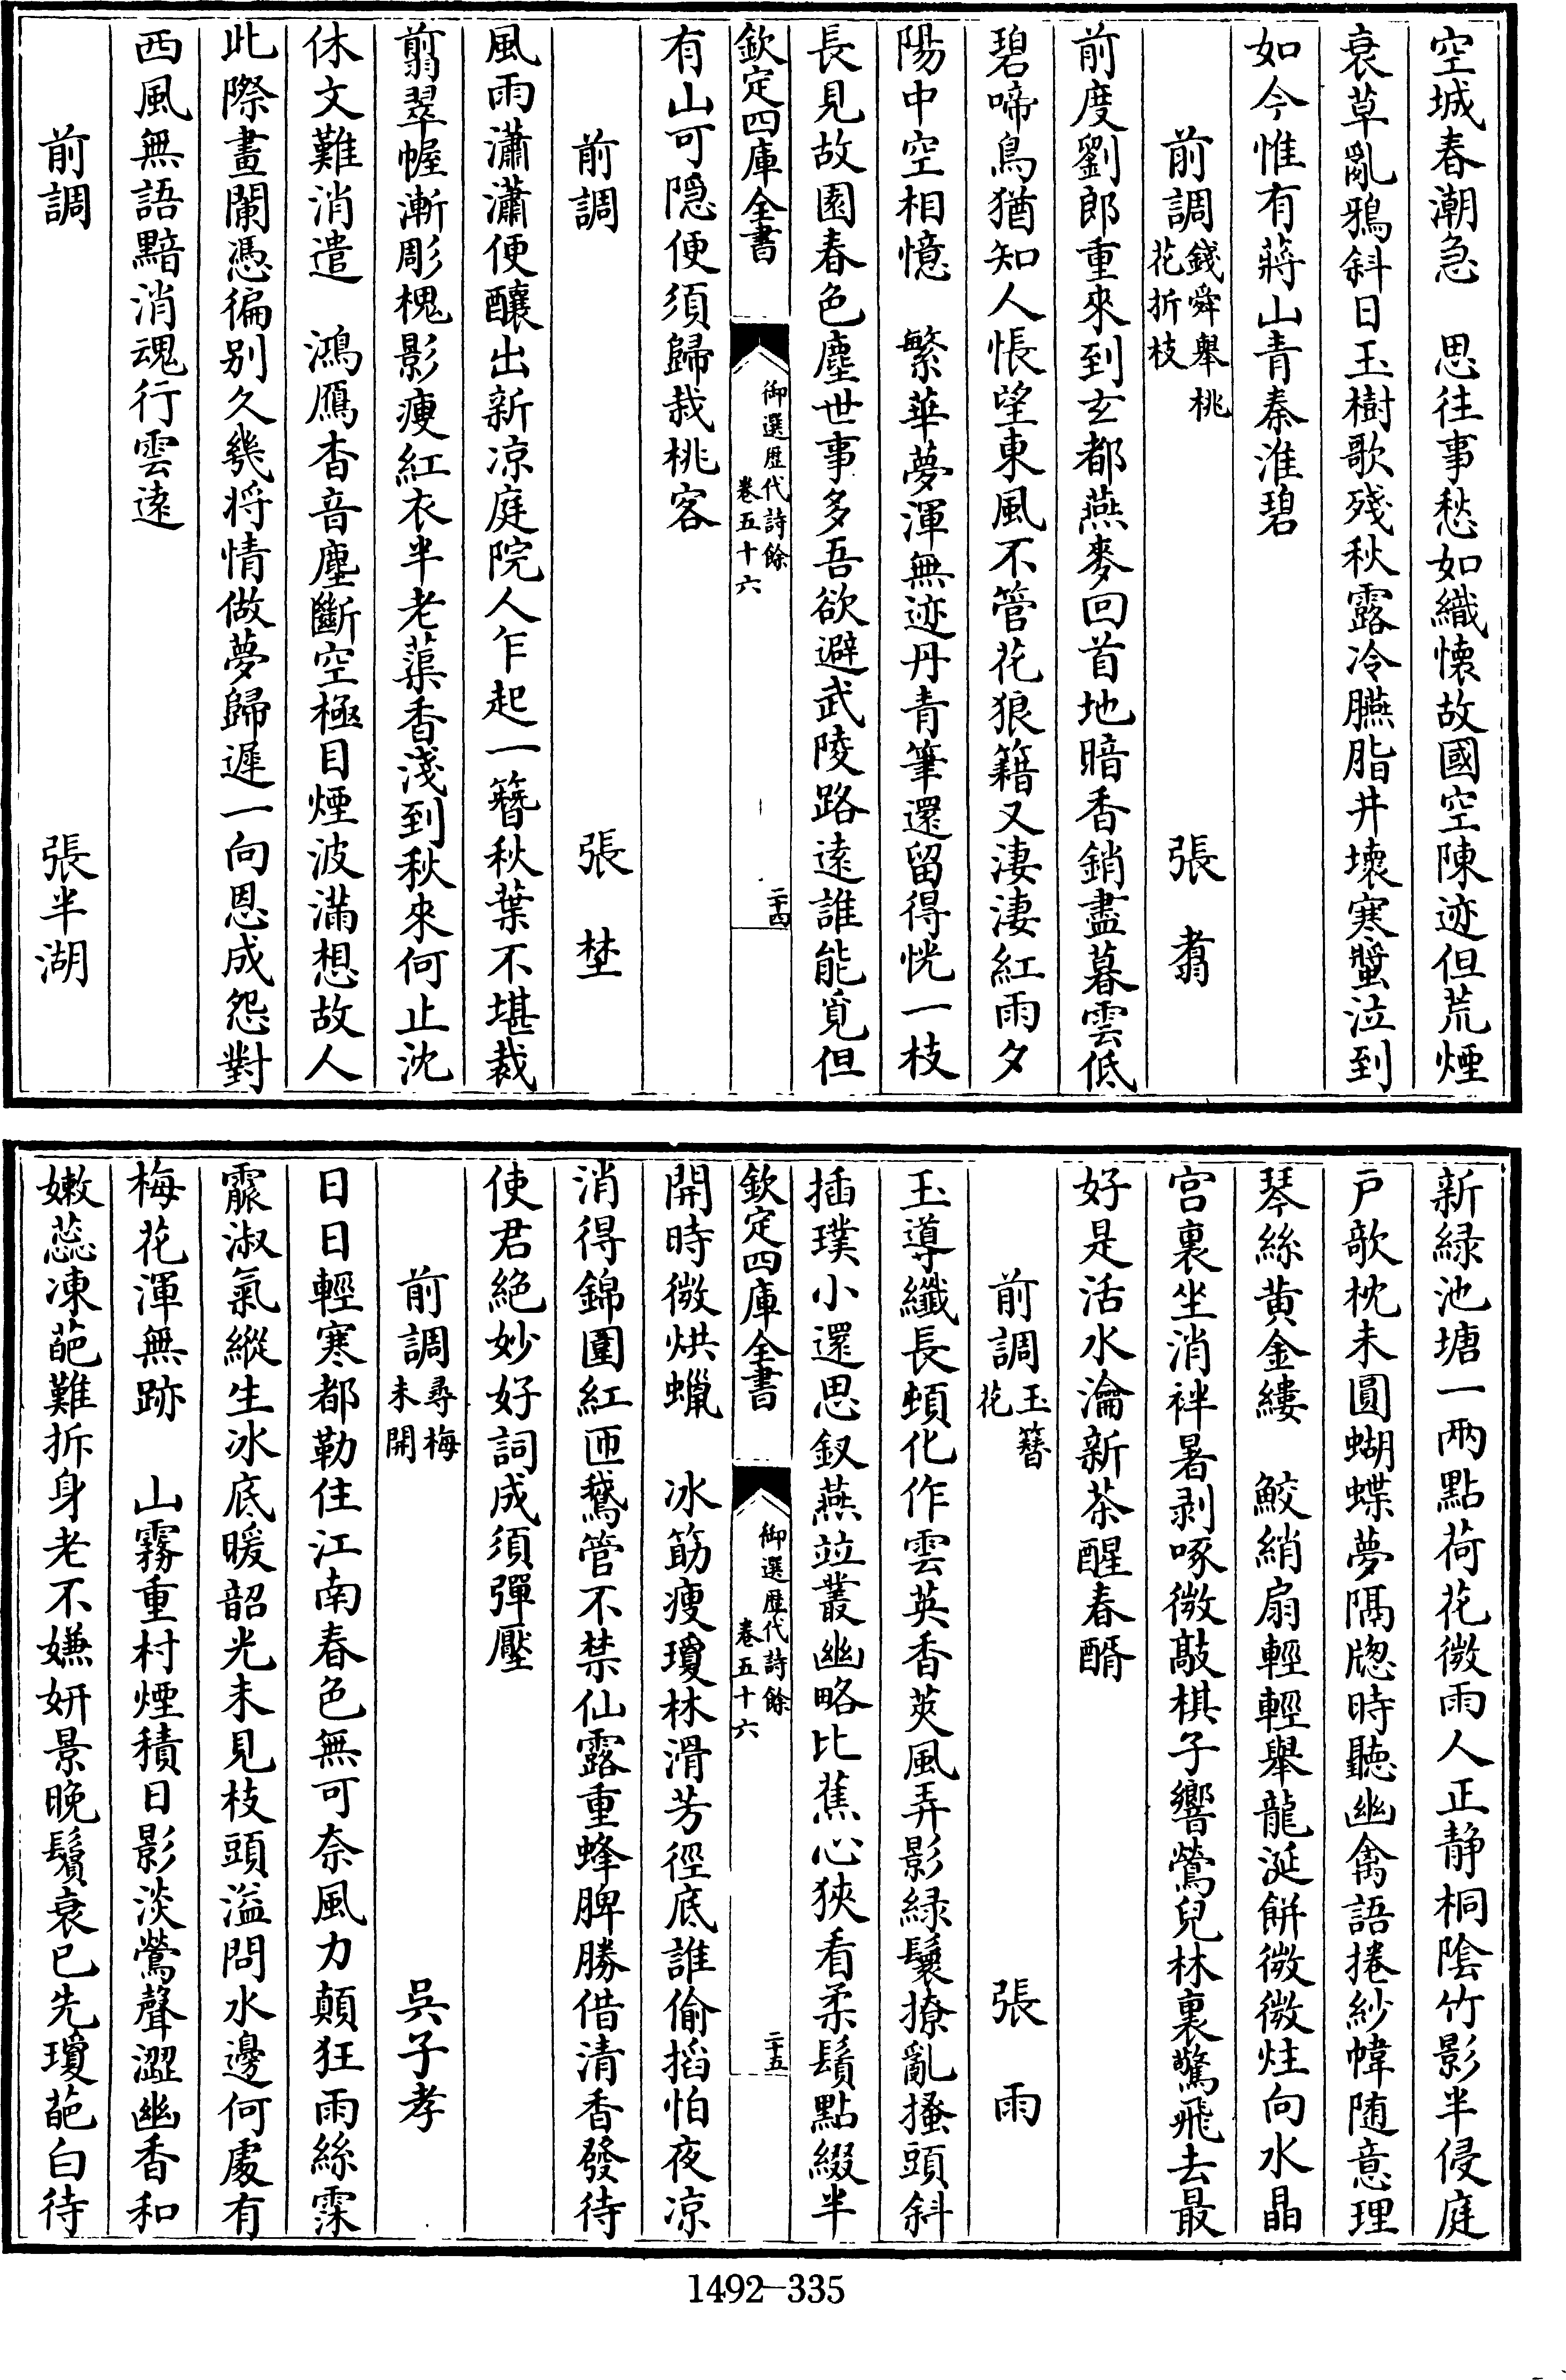 空城春潮急　思往事愁如織懐故國空陳迹但荒煙
衰草亂鴉斜日玉樹歌殘秋露冷臙脂井壊寒螿泣到
如今惟有蔣山青秦淮碧
前調錢舜舉桃花折枝　張翥
前度劉郎重來到玄都燕麥回首地暗香銷盡暮雲低
碧啼鳥猶知人悵望東風不管花狼籍又淒淒紅雨夕
陽中空相憶　繁華夢渾無迹丹青筆還留得恍一枝
長見故園春色塵世事多吾欲避武陵路逺誰能覓但
欽定四庫全書　御選歴代詩餘　卷五十六　二十四
有山可隠便須歸栽桃客
前調　張埜
風雨瀟瀟便釀出新凉庭院人乍起一簪秋葉不堪裁
翦翠幄漸彫槐影痩紅衣半老蕖香淺到秋來何止沈
休文難消遣　鴻鴈杳音塵斷空極目煙波滿想故人
此際畫闌憑徧别久幾將情做夢歸遲一向恩成怨對
西風無語黯消魂行雲逺
前調　張半湖
新緑池塘一兩點荷花微雨人正静桐陰竹影半侵庭
户欹枕未圓蝴蝶夢隔牕時聽幽禽語捲紗幃随意理
琴絲黄金縷　鮫綃扇輕輕舉龍涎餅微微炷向水晶
宫裏坐消袢暑剥啄微敲棋子響鶯兒林裏驚飛去最
好是活水瀹新茶醒春醑
前調玉簪花　張雨
玉導纖長頓化作雲英香莢風弄影緑鬟撩亂搔頭斜
插璞小還思釵燕竝叢幽略比蕉心狹看柔鬚點綴半
欽定四庫全書　御選歴代詩餘　卷五十六　二十五
開時微烘蠟　冰筯痩瓊林滑芳徑底誰偷掐怕夜凉
消得錦圍紅匝鵞管不禁仙露重蜂脾勝借清香發待
使君絶妙好詞成須彈壓
前調尋梅未開　吳子孝
日日輕寒都勒住江南春色無可奈風力顛狂雨絲霂
霢淑氣縱生冰底暖韶光未見枝頭溢問水邊何處有
梅花渾無跡　山霧重村煙積日影淡鶯聲澀幽香和
嫩蕊凍葩難拆身老不嫌妍景晚鬢衰已先瓊葩白待
1492—335